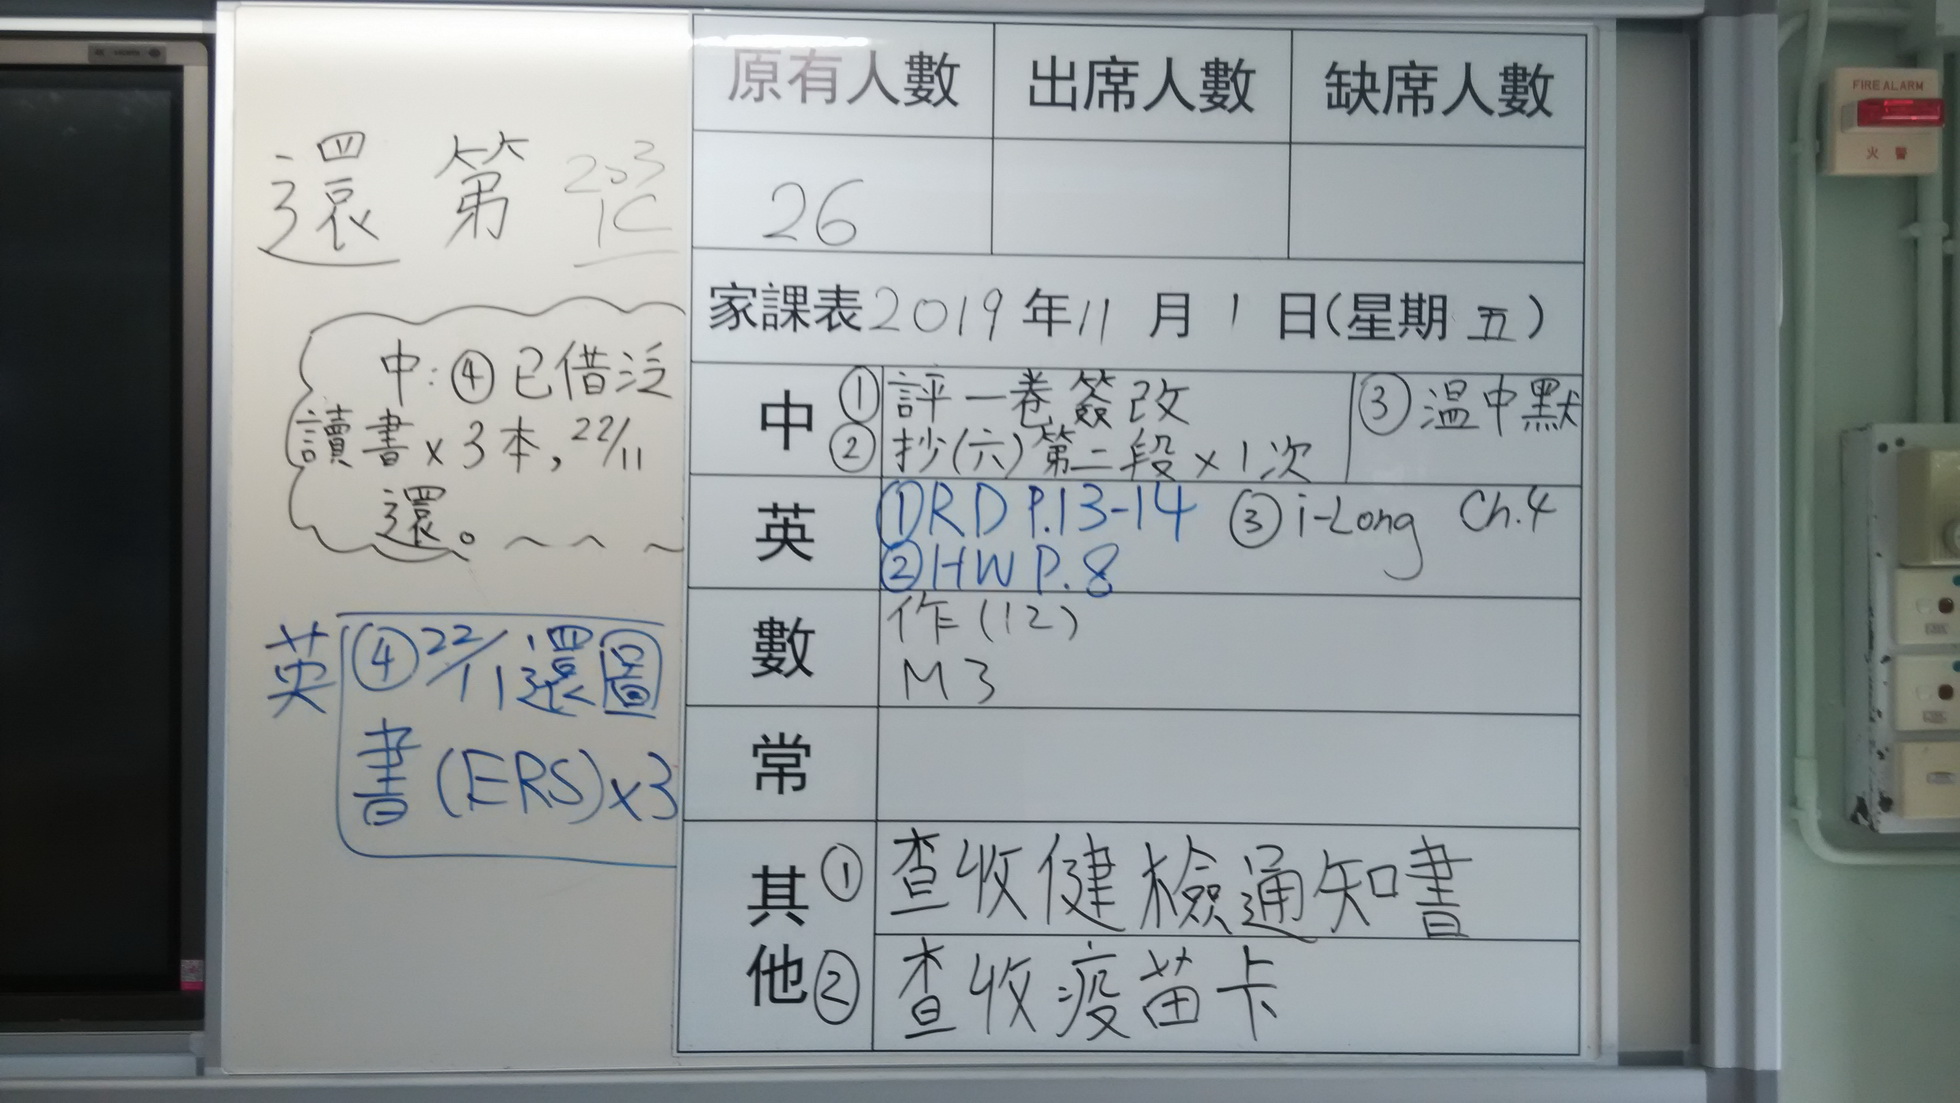 還 第
中:④已借泛
讀書x3本,22/11
還。
英 ④22/11還圖
書(ERS)x3
原有人數 出席人數 缺席人數
26
家課表2019年11月1日(星期五)
中 ①評一卷簽改 ③溫中默
②抄(六)第二段x1次
英 ①RD P.13-14 ③i-Long Ch.4
②HW P.8
數 作(12)
M3
常
其他 ①查收健檢通知書
②查收疫苗卡
FIRE ALARM
火警